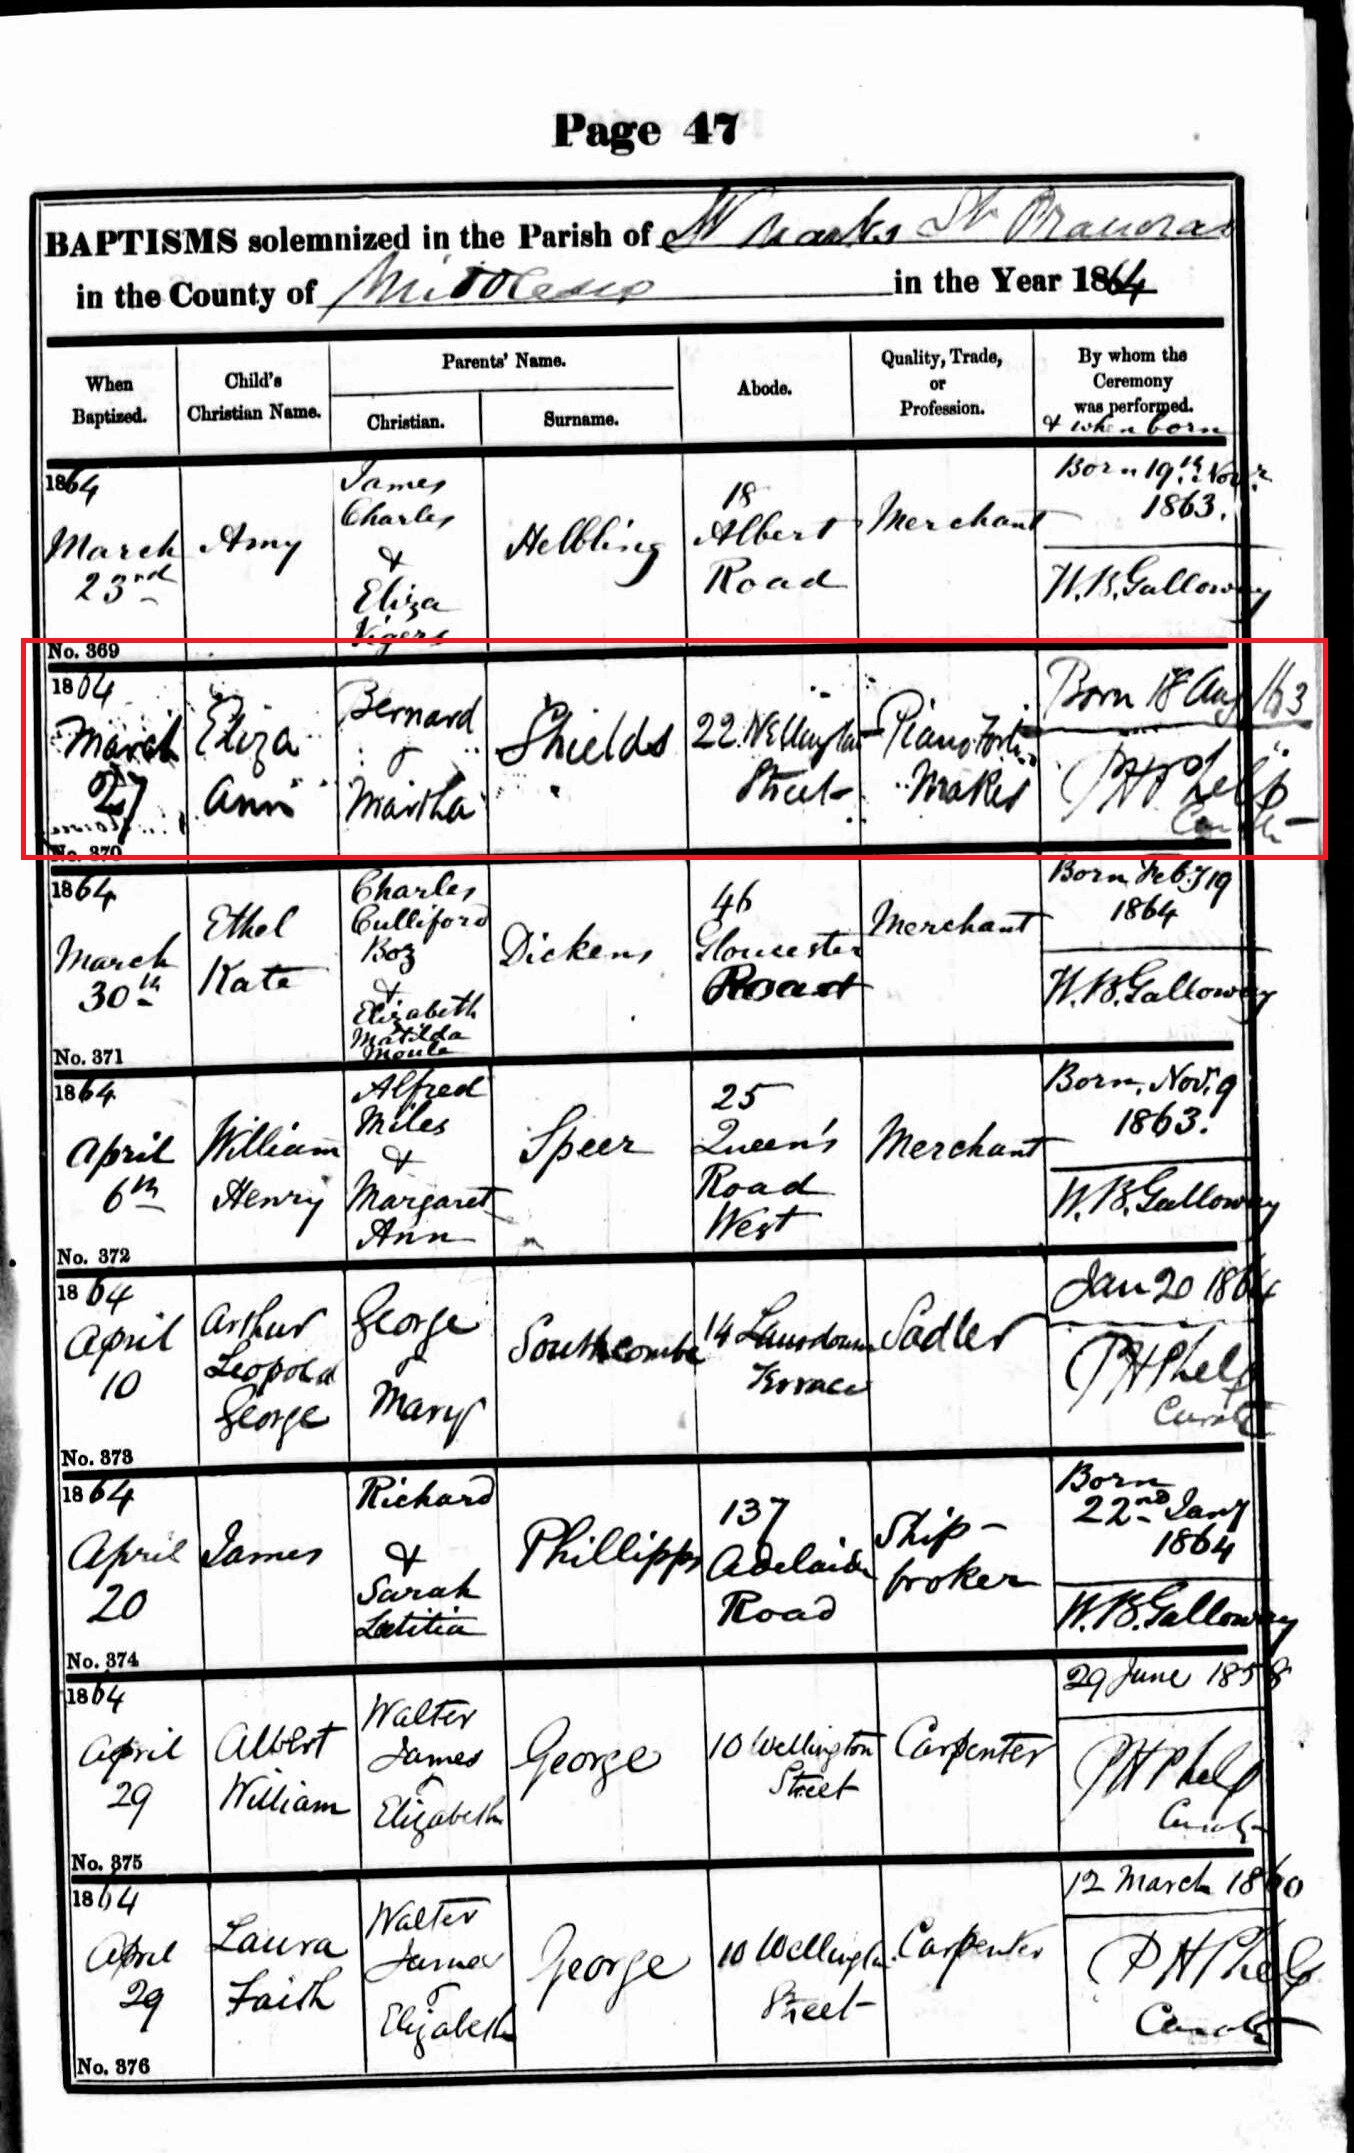 Page 47
BAPTISMS solemnized in the Parish of St Marks St Pancras
in the County of Middlesex in the Year 1864
When Baptized.
Child's Christian Name.
Parents' Name.
Christian.
Surname.
Abode.
Quality, Trade, or Profession.
By whom the Ceremony was performed.
& when born
1864
March
23rd
No. 369
Amy
James
Charles
&
Eliza
Vigers
Helbling
18
Albert
Road
Merchant
Born 19th Novr
1863.
W.B. Galloway
1864
March
27
No. 370
Eliza
Ann
Bernard
&
Martha
Shields
22 Wellington
Street
Piano Forte
Maker
Born 18 Aug 1863
P H Phelp
Curate
1864
March
30th
No. 371
Ethel
Kate
Charles
Culliford
Boz
&
Elizabeth
Matilda
Moule
Dickens
46
Gloucester
Road
Merchant
Born Feby 19
1864
W.B. Galloway
1864
April
6th
No. 372
William
Henry
Alfred
Miles
&
Margaret
Ann
Speer
25
Queen's
Road
West
Merchant
Born Nov. 9
1863.
W.B. Galloway
1864
April
10
No. 373
Arthur
Leopold
George
George
&
Mary
Southcombe
14 Lansdown
Terrace
Sadler
Jan 20 1864
P H Phelp
Curate
1864
April
20
No. 374
James
Richard
&
Sarah
Letitia
Phillipps
137
Adelaide
Road
Ship-
broker
Born
22nd Jany
1864
W.B. Galloway
1864
April
29
No. 375
Albert
William
Walter
James
&
Elizabeth
George
10 Wellington
Street
Carpenter
29 June 1858
P H Phelp
Curate
1864
April
29
No. 376
Laura
Faith
Walter
James
&
Elizabeth
George
10 Wellington
Street
Carpenter
12 March 1860
P H Phelp
Curate